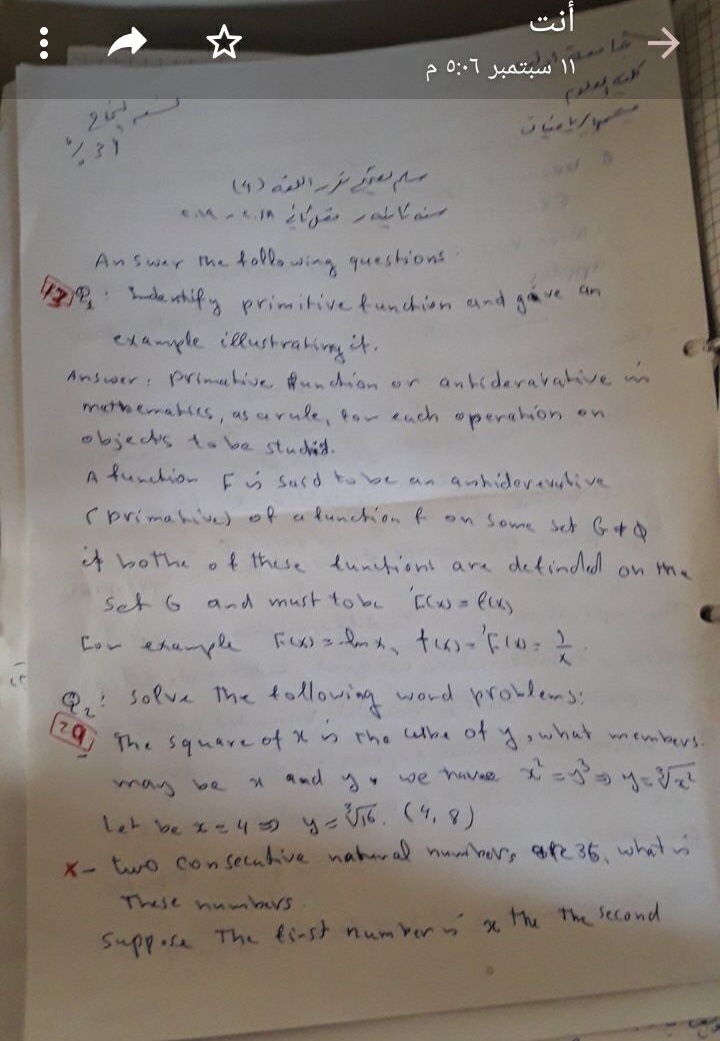 أنت
١١ سبتمبر ٥:٠٦ م
جامعة
كلية العلوم
قسم الرياضيات
سلم تصحيح مقرر اللغة (4)
سنة ثانية
Answer the following questions
13 Q1: Indentify primitive function and give an
example illustrating it.
Answer: primative function or antiderarative in
mathematics, as a rule, for each operation on
objects to be studid.
A function F is said to be an antiderevative
(primative) of a function f on some set G≠Φ
if bothe of these functions are definded on the
set G and must to be F'(x) = f(x)
For example F(x) = ln x, f(x) = F'(x) = 1/x
Q2: solve the following word problems:
29 - The square of x is the cube of y, what members
may be x and y, we have x² = y³ ⇒ y = ∛x²
Let be x = 4 ⇒ y = ∛16. (4, 8)
x - two consecutive natural numbers are 36, what is
These numbers.
suppose The first number is x the the second